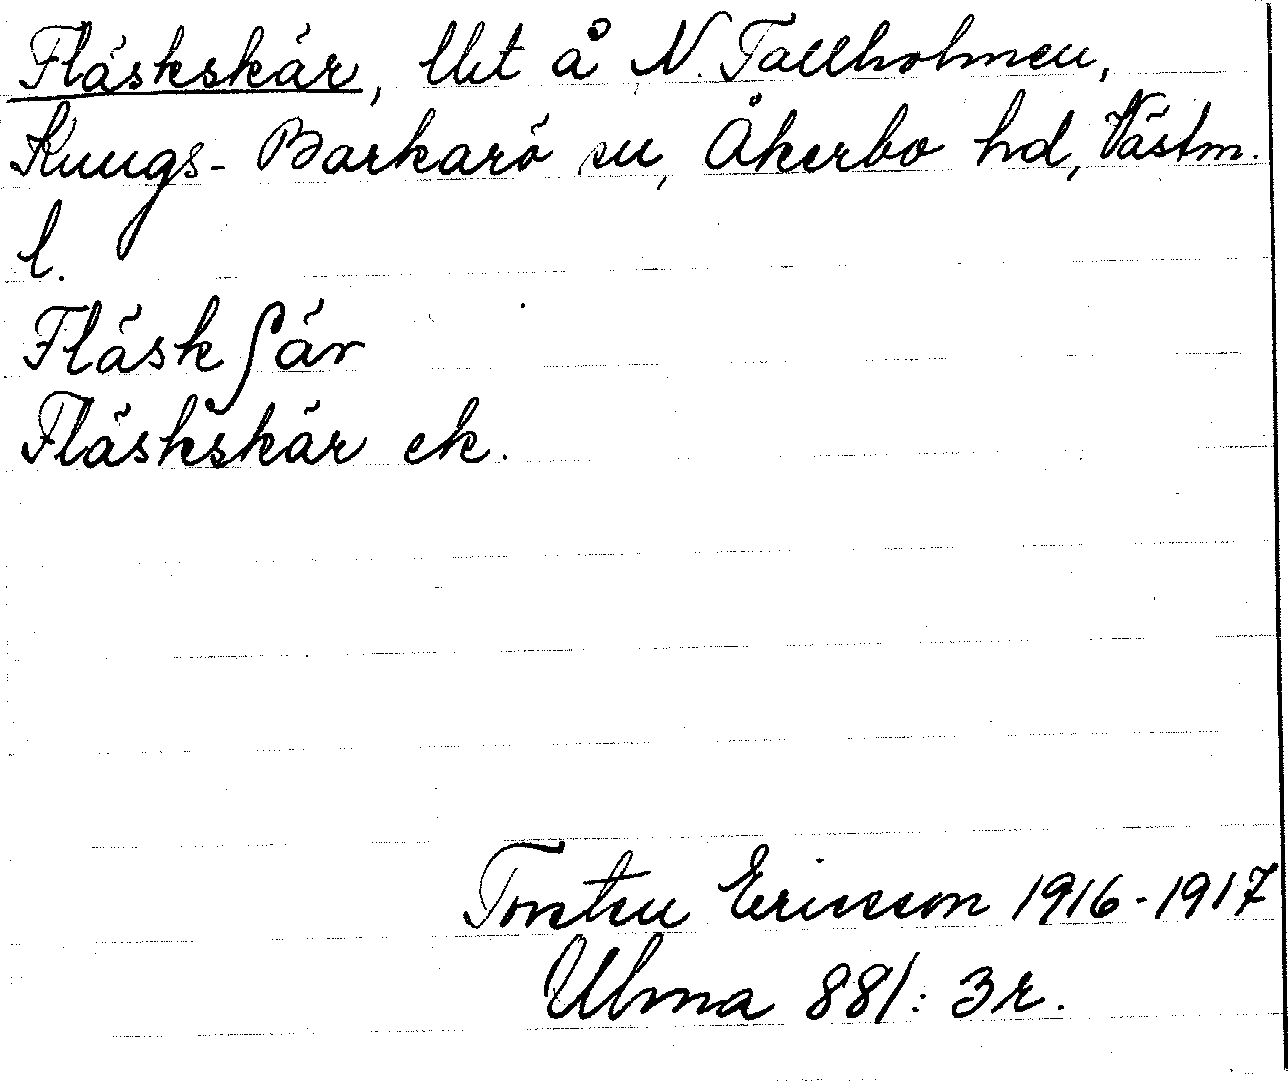 Fläskskär, lht å N. Tallholmen,
Kungs-Barkarö sn, Åkerbo hd, Västm.
l.
Fläskʃär
Fläskskär ek.
Torsten Ericsson 1916-1917
Ulma 881: 3 r.